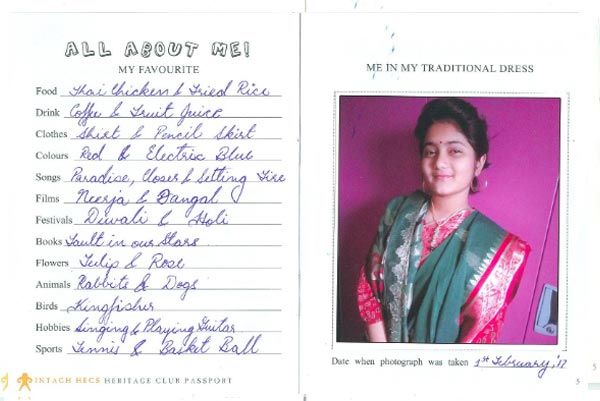 ALL ABOUT ME!
MY FAVOURITE
Food Thai Chicken & Fried Rice
Drink Coffee & Fruit Juice
Clothes Shirt & Pencil Skirt
Colours Red & Electric Blue
Songs Paradise, Closer & Setting Fire
Films Neerja & Dangal
Festivals Diwali & Holi
Books Fault in our Stars
Flowers Tulip & Rose
Animals Rabbits & Dogs
Birds Kingfisher
Hobbies Singing & Playing Guitar
Sports Tennis & Basket Ball
INTACH HECS HERITAGE CLUB PASSPORT
ME IN MY TRADITIONAL DRESS
Date when photograph was taken 1st February,'17
5
5